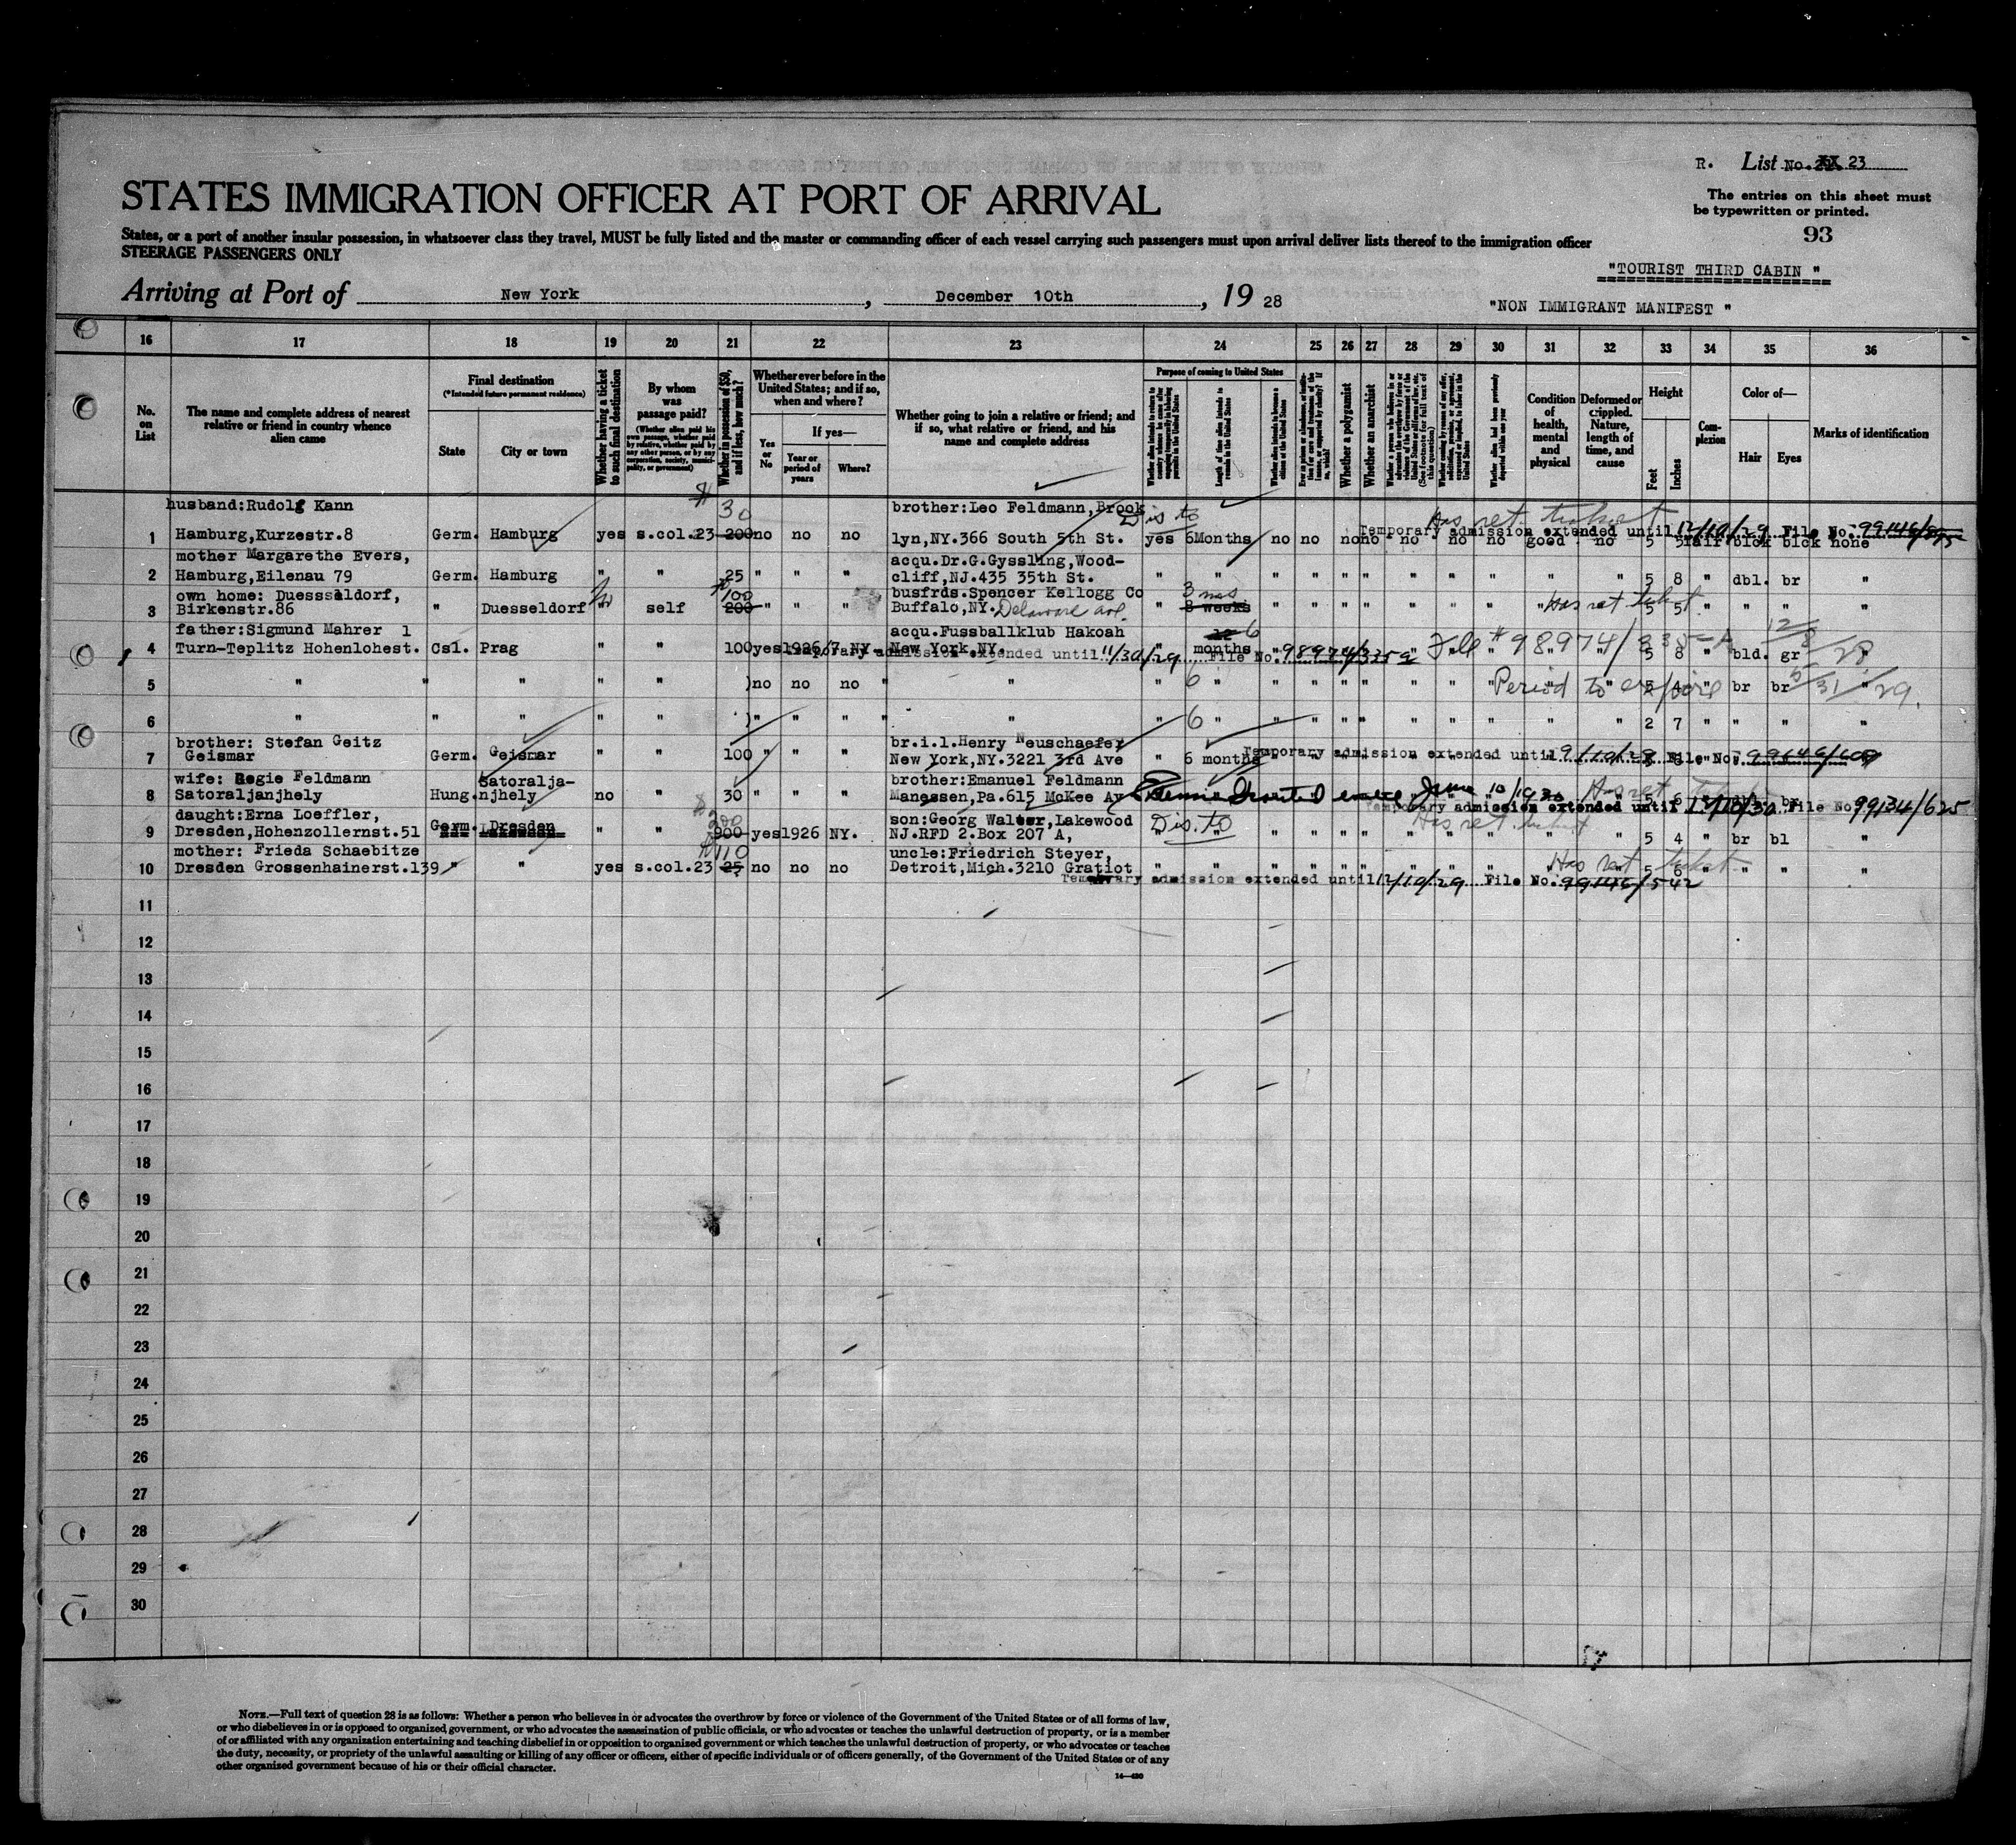 R. List No. 23
The entries on this sheet must
be typewritten or printed.
93
STATES IMMIGRATION OFFICER AT PORT OF ARRIVAL
States, or a port of another insular possession, in whatsoever class they travel, MUST be fully listed and the master or commanding officer of each vessel carrying such passengers must upon arrival deliver lists thereof to the immigration officer
STEERAGE PASSENGERS ONLY
"TOURIST THIRD CABIN"
Arriving at Port of New York, December 10th, 19 28
"NON IMMIGRANT MANIFEST"
16 17 18 19 20 21 22 23 24 25 26 27 28 29 30 31 32 33 34 35 36
No. on List
The name and complete address of nearest relative or friend in country whence alien came
Final destination
(*Intended future permanent residence)
State
City or town
Whether having a ticket to such final destination
By whom was passage paid?
(Whether alien paid his own passage, whether paid by relative, whether paid by any other person, or by any corporation, society, municipality, or government)
Whether in possession of $50, and if less, how much?
Whether ever before in the United States; and if so, when and where?
Yes or No
If yes—
Year or period of years
Where?
Whether going to join a relative or friend; and if so, what relative or friend, and his name and complete address
Purpose of coming to United States
Length of time alien intends to remain in the United States
Whether alien intends to become a citizen of the United States
Whether a polygamist
Whether an anarchist
Condition of health, mental and physical
Deformed or crippled. Nature, length of time, and cause
Height
Feet
Inches
Complexion
Color of—
Hair
Eyes
Marks of identification
husband:Rudolf Kann 30 brother:Leo Feldmann,Brook Dis to Has ret. ticket
1 Hamburg,Kurzestr.8 Germ. Hamburg yes s.col.23 200 no no no lyn,NY.366 South 5th St. yes 6Months no no no no no no no good no 5 5 fair blck blck none
Temporary admission extended until 12/10/29 File No.
mother Margarethe Evers, acqu.Dr.G.Gyssling,Wood-
2 Hamburg,Eilenau 79 Germ. Hamburg " " 25 " " " cliff,NJ.435 35th St. " " " " " " " " " " " " 5 8 " dbl. br "
own home: Duesseldorf, $100 busfrds.Spencer Kellogg Co 3 mos
3 Birkenstr.86 " Duesseldorf " self 200 " " " Buffalo,NY. Delaware ave. " 8 weeks " " " " " " " " " 5 5 " " " "
Has ret ticket
father:Sigmund Mahrer 1 acqu.Fussballklub Hakoah 6
4 Turn-Teplitz Hohenlohest. Csl. Prag " " 100 yes 1926/7 NY. New York,NY. " months " " " " " " 5 8 " bld. gr "
Temporary admission extended until 11/30/29 File No. 98974/335a
File # 98974/335-A 12/8/28
5 " " " " " ) no no no " " " 6 " " " " " " " " 5 4 " br br "
Period to expire 5/31/29.
6 " " " " " ) " " " " " " 6 " " " " " " " " " " 2 7 " " " "
brother: Stefan Geitz br.i.l.Henry Neuschaefer
7 Geismar Germ. Geismar " " 100 " " " New York,NY.3221 3rd Ave " 6 months
Temporary admission extended until 9/10/29 File No.
wife: Regie Feldmann Satoralja- brother:Emanuel Feldmann
8 Satoraljanjhely Hung. njhely no " 30 " " " Manessen,Pa.615 McKee Av
June 10/1930
Has ret ticket
Temporary admission extended until 12/10/30 File No. 99134/625
daught:Erna Loeffler, Germ. Dresden 200 son:Georg Walter,Lakewood Dis. to Has ret. ticket
9 Dresden,Hohenzollernst.51 " " 900 yes 1926 NY. NJ.RFD 2.Box 207 A, " " " " " " " " " " 5 4 " br bl "
mother: Frieda Schaebitze $110 uncle:Friedrich Steyer,
10 Dresden Grossenhainerst.139 " " yes s.col.23 25 no no no Detroit,Mich.3210 Gratiot " " " " " " " " " " " 5 6 " " " "
Has ret ticket
Temporary admission extended until 12/10/29 File No. 99146/542
11
12
13
14
15
16
17
18
19
20
21
22
23
24
25
26
27
28
29
30
NOTE.—Full text of question 28 is as follows: Whether a person who believes in or advocates the overthrow by force or violence of the Government of the United States or of all forms of law,
or who disbelieves in or is opposed to organized government, or who advocates the assassination of public officials, or who advocates or teaches the unlawful destruction of property, or is a member
of or affiliated with any organization entertaining and teaching disbelief in or opposition to organized government or which teaches the unlawful destruction of property, or who advocates or teaches
the duty, necessity, or propriety of the unlawful assaulting or killing of any officer or officers, either of specific individuals or of officers generally, of the Government of the United States or of any
other organized government because of his or their official character.
14—420